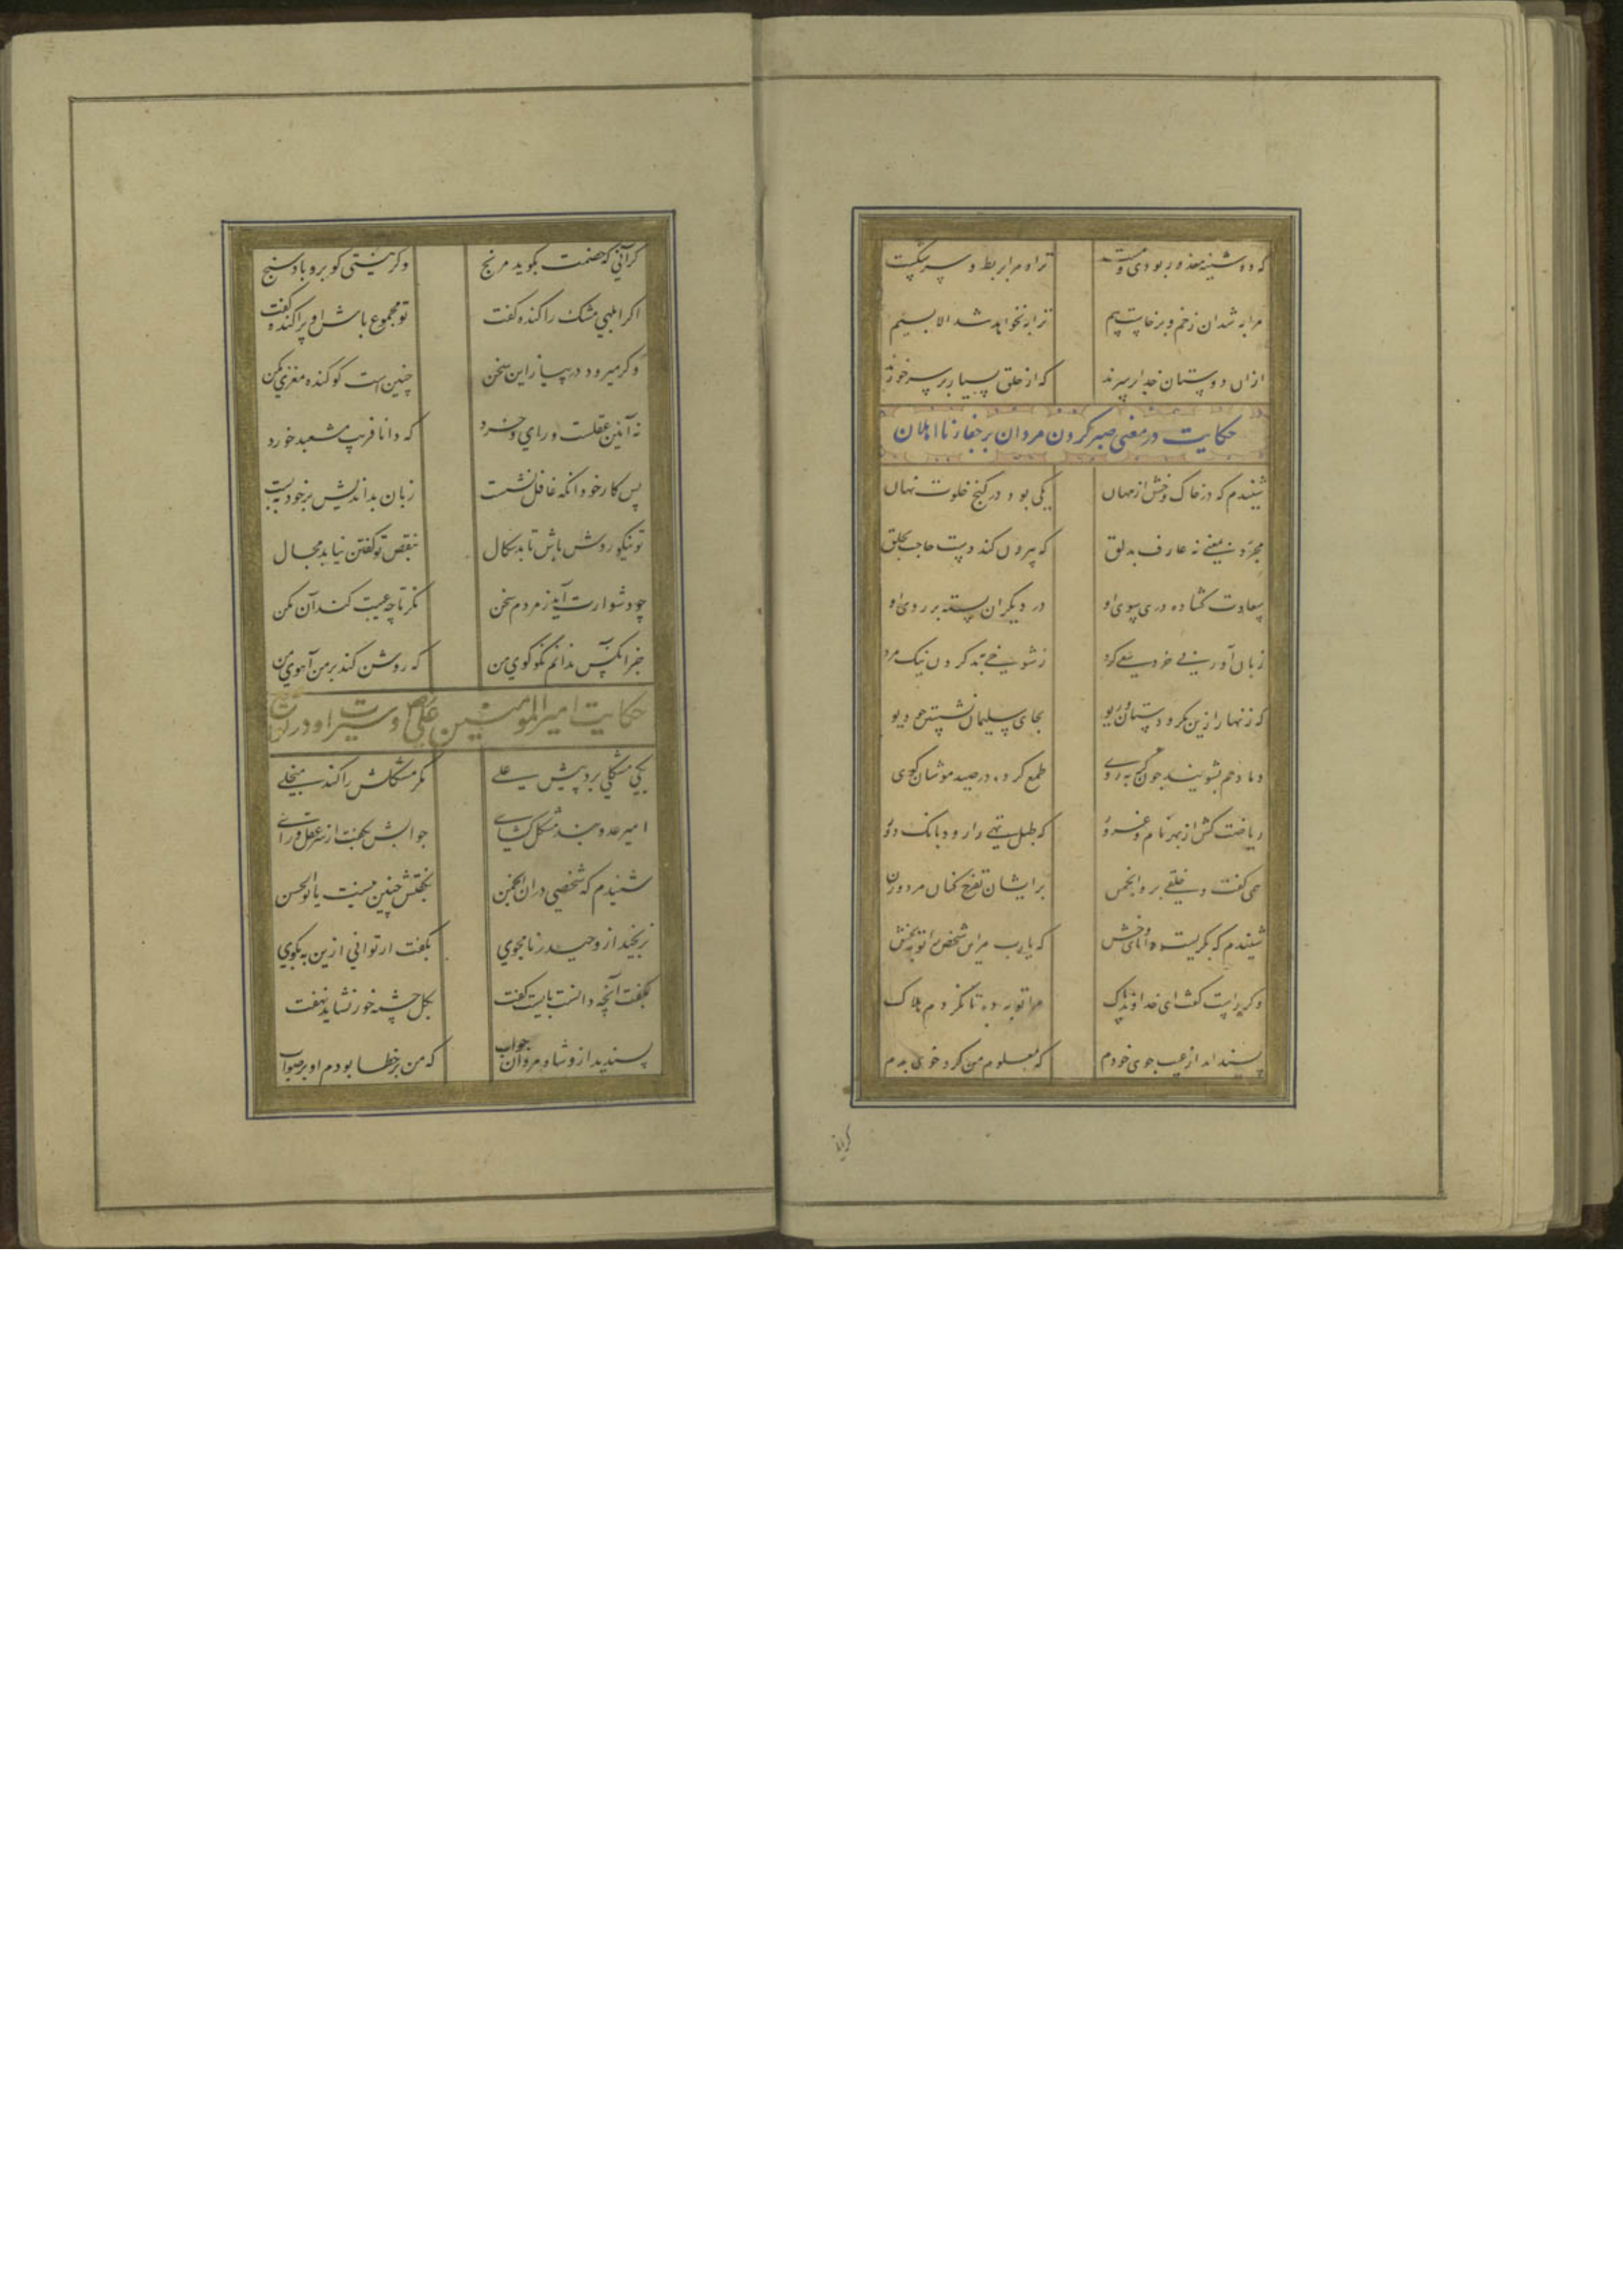 که دوشینه معذور بودی و مست ترا و مرا بربط و سر شکست
مرا به شد آن زخم و برخاست بیم ترا به نخواهد شد الا بسیم
ازان دوستان خدا بر سرند که از خلق بسیار بر سر خورند
حکایت در معنی صبر کردن مردان بر جفا از نااهلان
شنیدم که در خاک وخش از مهان یکی بود در کنج خلوت نهان
مجرد بمعنی نه عارف بدلق که بیرون کند دست حاجت بخلق
سعادت گشاده دری سوی او در دیگران بسته بر روی او
زبان آوری بی خرد سعی کرد ز شوخی ببد کردن نیک مرد
که زنهار ازین مکر و دستان و ریو بجای سلیمان نشستن چو دیو
دمادم بشویند چون گربه روی طمع کرده در صید موشان کوی
ریاضت کش از بهر نام و غرور که طبل تهی را رود بانک دور
همی گفت و خلقی برو انجمن بر ایشان تفرج کنان مرد و زن
شنیدم که بگریست دانای وخش که یارب مر این شخص را توبه بخش
وگر راست گفت ای خداوند پاک مرا توبه ده تا نگردم هلاک
پسند آمد از عیب جوی خودم که معلوم من کرد خوی بدم
گر آنی که خصمت بگوید مرنج وگر نیستی گو برو باد سنج
اگر ابلهی مشک را گنده گفت تو مجموع باش او پراکنده گفت
وگر میرود در پیاز این سخن چنین است گو گنده مغزی مکن
نه آئین عقلست و رای و خرد که دانا فریب مشعبد خورد
پس کار خود آنکه غافل نشست زبان بداندیش بر خود ببست
تو نیکو روش باش تا بدسکال بنقص تو گفتن نیابد مجال
چو دشوارت آید ز مردم سخن نگر تا چه عیبت کند آن مکن
جز آنکس ندانم نکو گوی من که روشن کند بر من آهوی من
حکایت امیرالمومنین علی و سیرت او در
یکی مشکلی برد پیش علی مگر مشکلش را کند منجلی
امیر عدو بند مشکل گشای جوابش بگفت از سر عقل و رای
شنیدم که شخصی دران انجمن بگفتش چنین نیست یا بوالحسن
نرنجید ازو حیدر نامجوی بگفت ار توانی ازین به بگوی
بگفت آنچه دانست بایست گفت بگل چشمه خور نشاید نهفت
پسندید ازو شاه مردان جواب که من بر خطا بودم او بر صواب